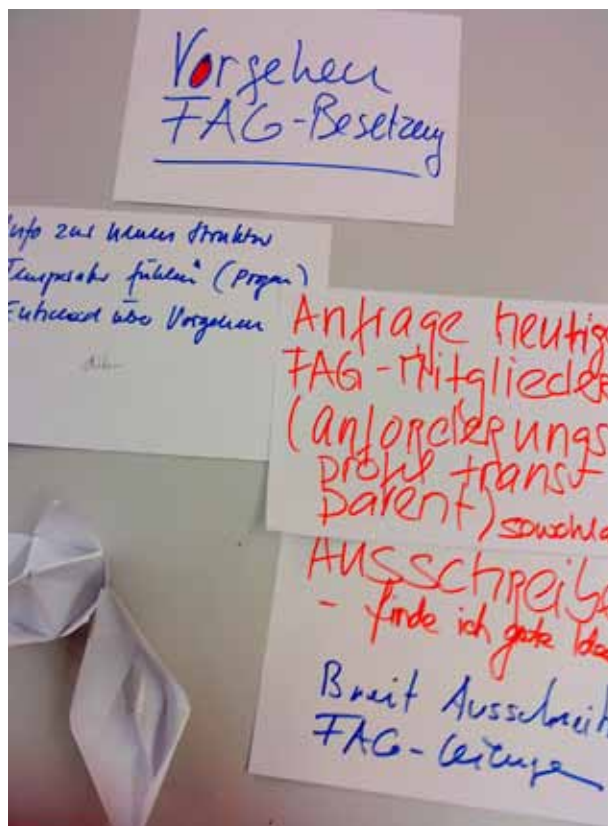 Vorgehen
FAG-Besetzung
Info zur neuen Struktur
Temperatur fühlen (Progn)
Entscheid über Vorgehen
Anfrage heutige
FAG-Mitglieder
(anforderungs
profil trans
parent) sowohl a
AUSSCHREIBE
- finde ich gute Idee
Breit Ausschreib
FAG-Leitungen